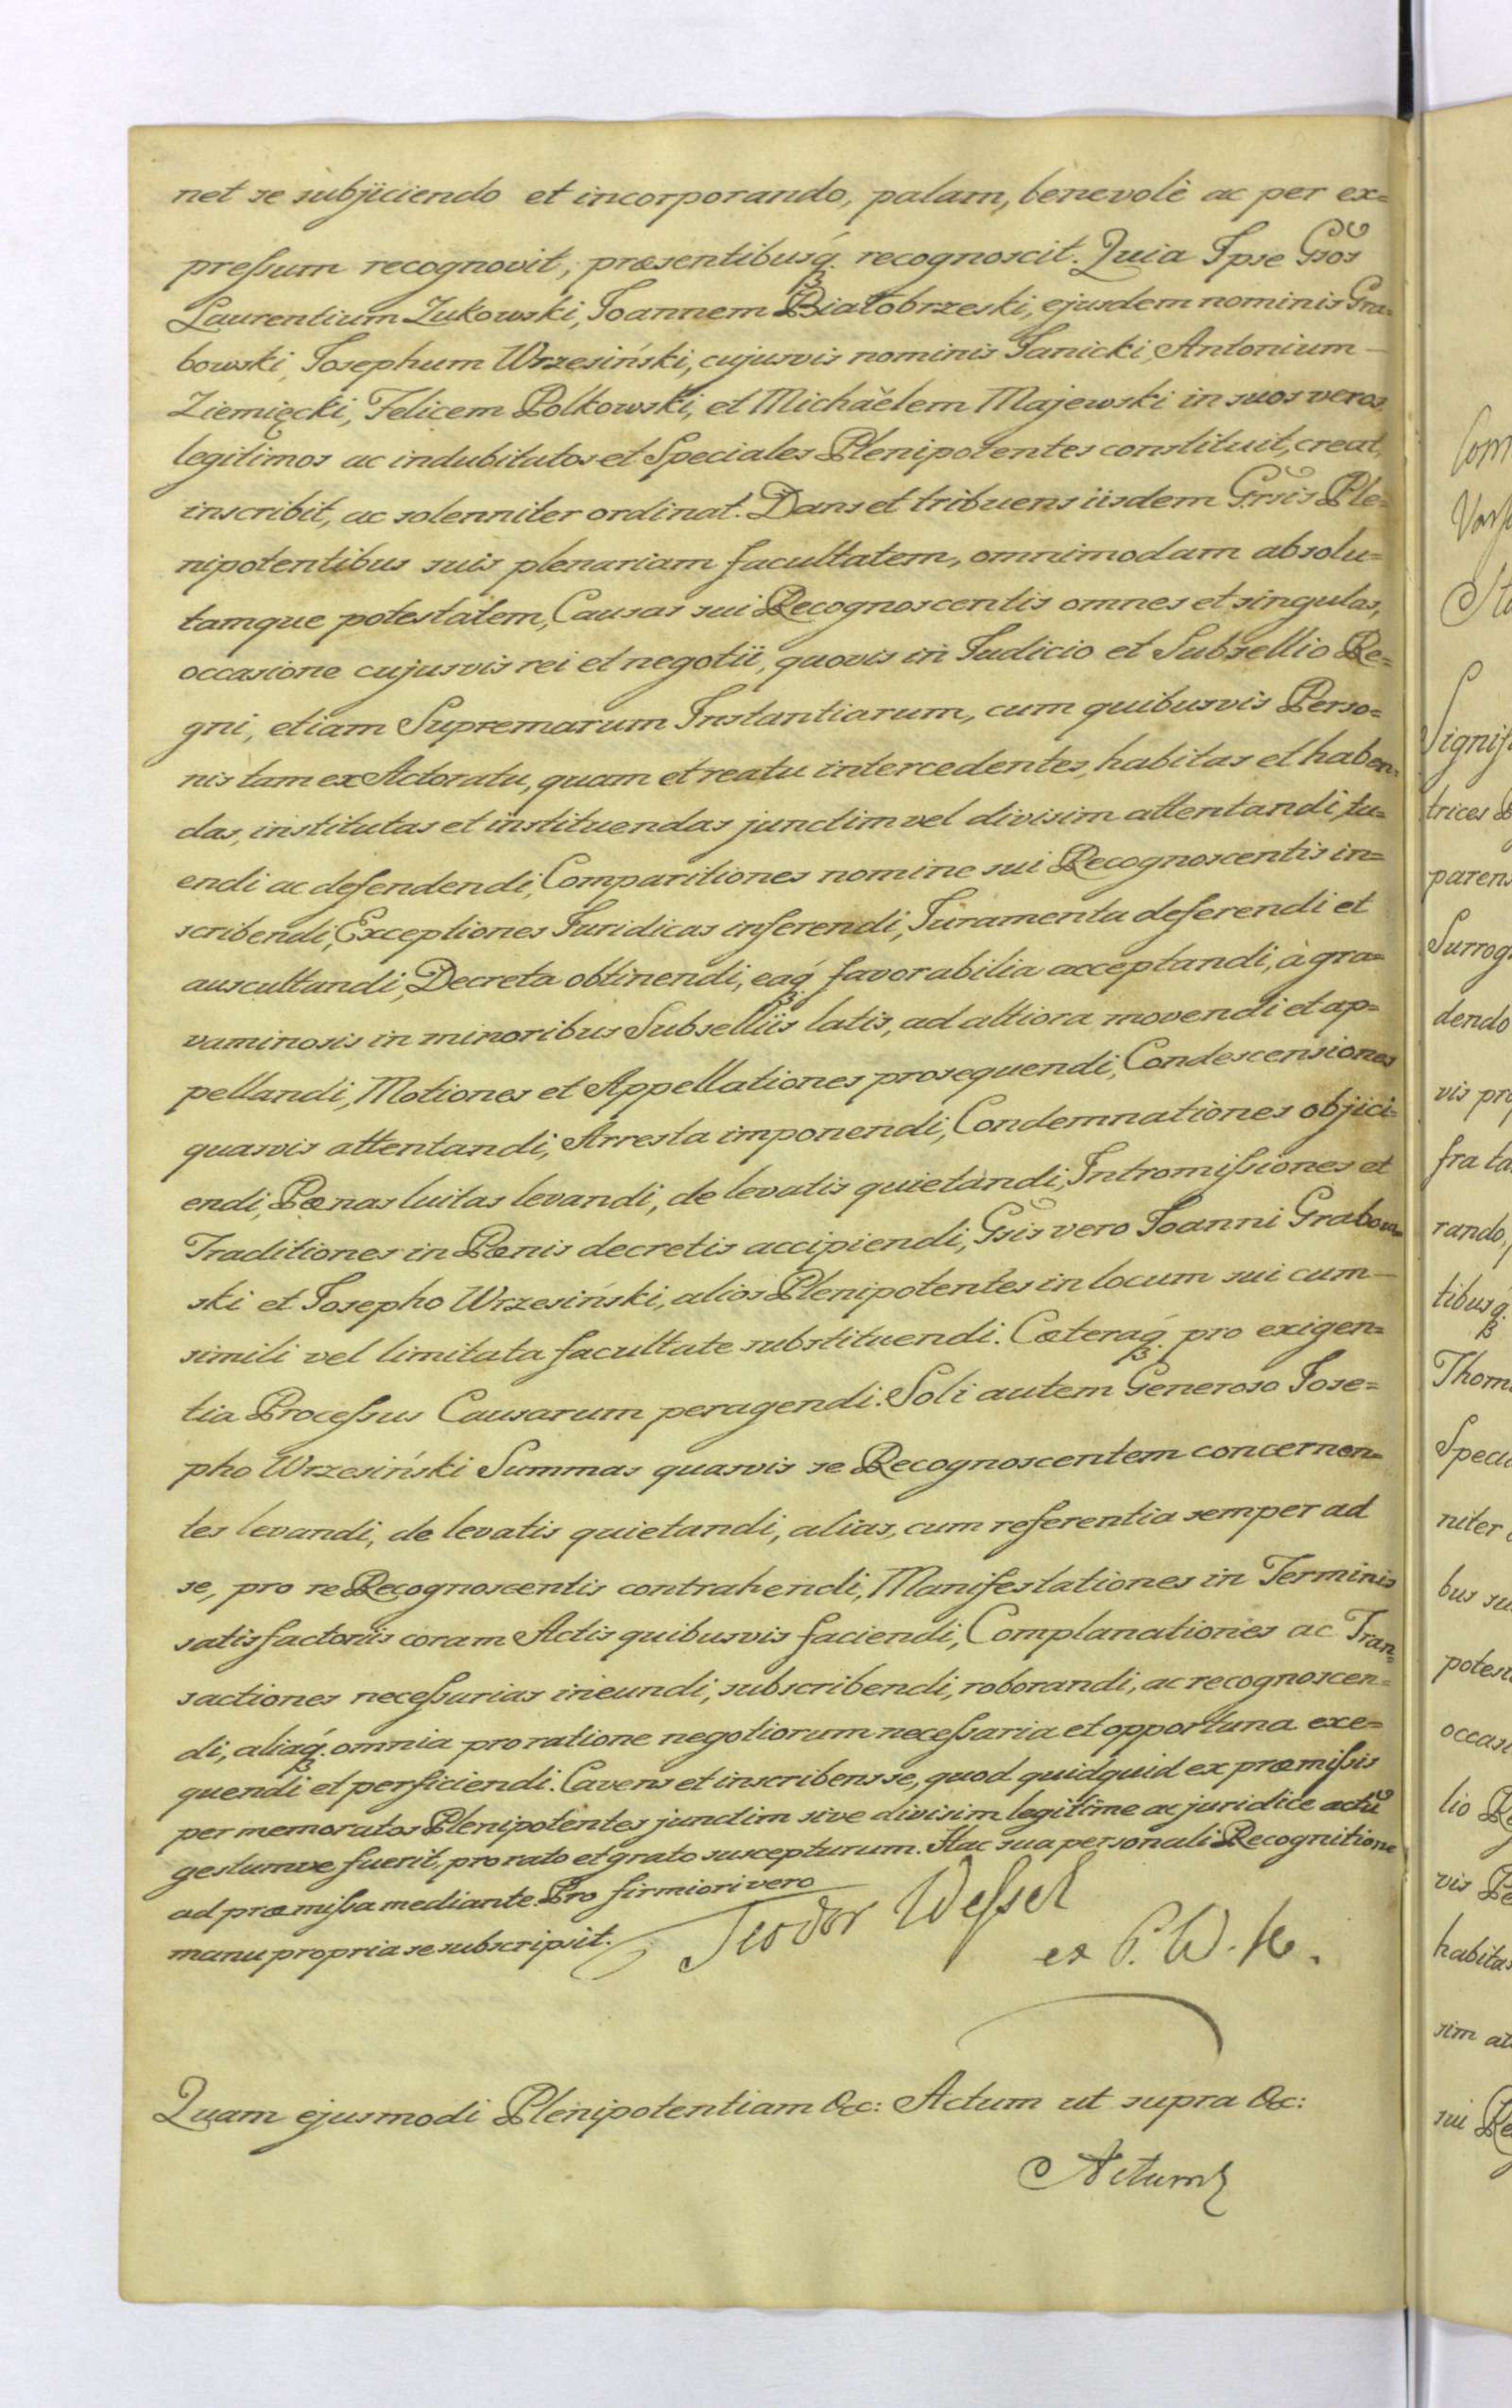 net se subjiciendo et incorporando, palam, benevolè ac per ex=
preſsum recognovit, præsentibusq́ꝫ recognoscit. Quia Ipse Gsos
Laurentium Zukowski, Joannem Białobrzeski, ejusdem nominis Gra=
bowski, Josephum Wrzesiński, cujusvis nominis Janicki, Antonium —
Ziemięcki, Felicem Polkowski, et Michaëlem Majewski in suos veros
legitimos ac indubitatos et Speciales Plenipotentes constituit, creat,
inscribit, ac solenniter ordinat. Dans et tribuens iisdem Grsis Ple=
nipotentibus suis plenariam facultatem, omnimodam absolu=
tamque potestatem, Causas sui Recognoscentis omnes et singulas,
occasione cujusvis rei et negotii, quovis in Judicio et Subsellio Re=
gni, etiam Supremarum Instantiarum, cum quibusvis Perso=
nis tam ex Actoratu, quam et reatu intercedentes, habitas et haben=
das, institutas et instituendas junctim vel divisim attentandi, tu=
endi ac defendendi, Comparitiones nomine sui Recognoscentis in=
scribendi, Exceptiones Juridicas inferendi, Juramenta deferendi et
auscultandi, Decreta obtinendi, eaq́ꝫ favorabilia acceptandi, à gra=
vaminosis in minoribus Subselliis latis, ad altiora movendi et ap=
pellandi, Motiones et Appellationes prosequendi, Condescensiones
quasvis attentandi, Arresta imponendi, Condemnationes objici=
endi, Pœnas luitas levandi, de levatis quietandi, Intromiſsiones et
Traditiones in Pœnis decretis accipiendi, Gsis vero Joanni Grabow=
ski et Josepho Wrzesiński, alios Plenipotentes in locum sui cum —
simili vel limitata facultate substituendi. Cæteraq́ꝫ pro exigen=
tia Proceſsus Causarum peragendi. Soli autem Generoso Jose=
pho Wrzesiński Summas quasvis se Recognoscentem concernen=
tes levandi, de levatis quietandi, alias, cum referentia semper ad
se, pro re Recognoscentis contrahendi, Manifestationes in Terminis
satisfactoriis coram Actis quibusvis faciendi, Complanationes ac Tran=
sactiones neceſsarias ineundi, subscribendi, roborandi, ac recognoscen=
di, aliaq́ꝫ omnia pro ratione negotiorum neceſsaria et opportuna exe=
quendi et perficiendi. Cavens et inscribens se, quod quidquid ex præmiſsis
per memoratos Plenipotentes junctim sive divisim legitime ac juridice actũ
gestumve fuerit, pro rato et grato suscepturum. Hac sua personali Recognitione
ad præmiſsa mediante. Pro firmiori vero
manu propria se subscripsit.
Teodor Weſsel
Quam ejusmodi Plenipotentiam &c: Actum ut supra &c:
Actum
Com
Signif
trices
paren
Surrog
dendo
vis pro
fra ta
rando,
tibusq́ꝫ
Thom
Speci
niter
bus su
potes
occasi
lio Re
vis Pe
habitas
sim at
sui Re